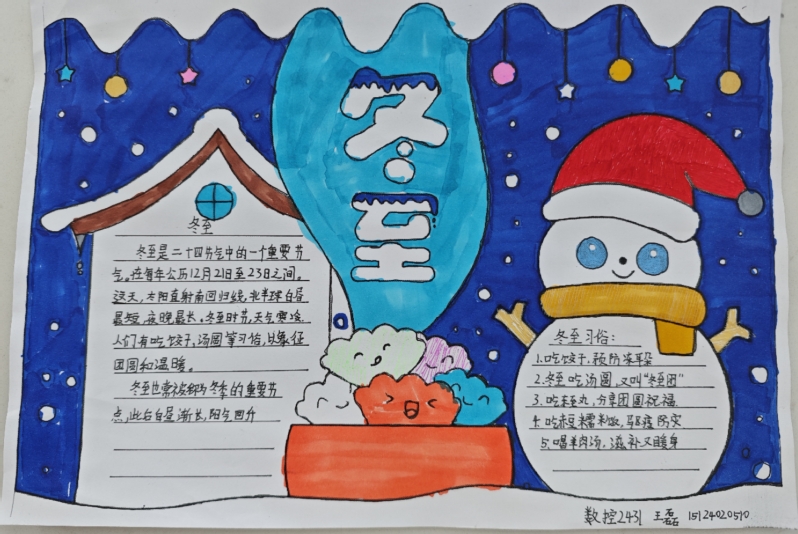 冬至
冬至
冬至是二十四节气中的一个重要节
气。在每年公历12月21日至23日之间。
这天,太阳直射南回归线,北半球白昼
最短,夜晚最长。冬至时节,天气寒冷,
人们有吃饺子,汤圆等习俗,以象征
团圆和温暖。
冬至也常被视为冬季的重要节
点,此后白昼渐长,阳气回升
冬至习俗:
1.吃饺子,预防冻耳朵
2.冬至吃汤圆,又叫“冬至团”
3.吃冬至丸,分享团圆祝福
4.吃赤豆糯米饭,驱疫防灾
5.喝羊肉汤,滋补又暖身
数控2431 王磊 15124020510